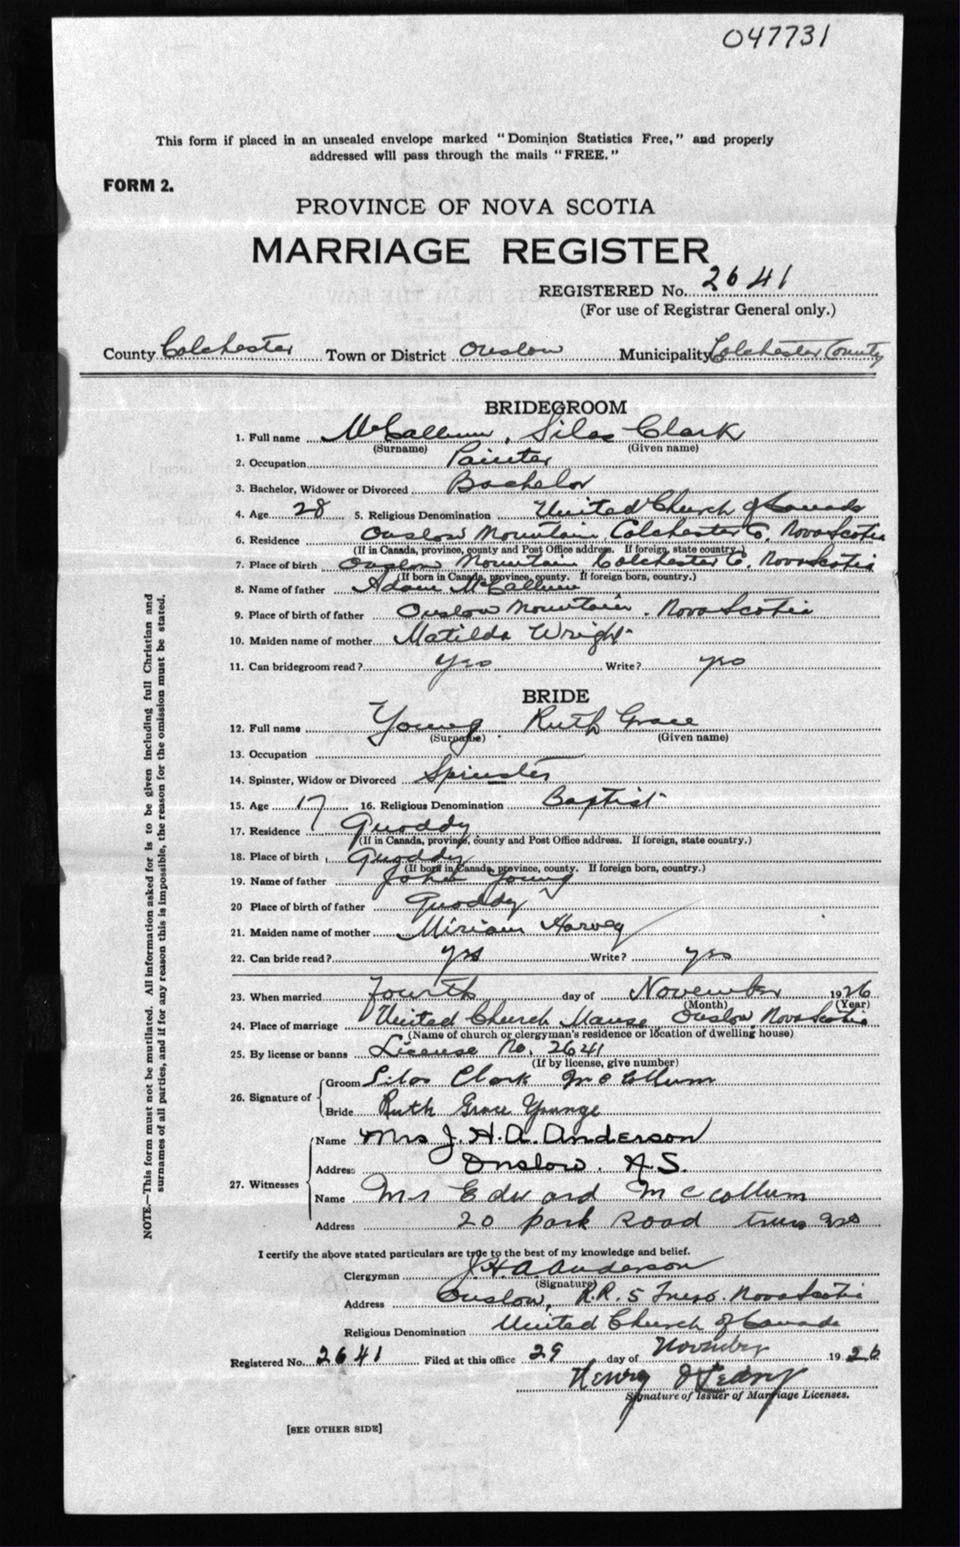 047731
This form if placed in an unsealed envelope marked "Dominion Statistics Free," and properly
addressed will pass through the mails "FREE."
FORM 2.
PROVINCE OF NOVA SCOTIA
MARRIAGE REGISTER
REGISTERED No. 2641
(For use of Registrar General only.)
County Colchester Town or District Onslow Municipality Colchester County
BRIDEGROOM
1. Full name McCallum, Silas Clark
(Surname) (Given name)
2. Occupation Painter
3. Bachelor, Widower or Divorced Bachelor
4. Age 28 5. Religious Denomination United Church of Canada
6. Residence Onslow Mountain Colchester Co. Nova Scotia
(If in Canada, province, county and Post Office address. If foreign, state country.)
7. Place of birth Onslow Mountain Colchester Co. Nova Scotia
(If born in Canada, province, county. If foreign born, country.)
8. Name of father Adam McCallum
9. Place of birth of father Onslow Mountain. Nova Scotia
10. Maiden name of mother Matilda Wright
11. Can bridegroom read? Yes Write? yes
BRIDE
12. Full name Young. Ruth Grace
(Surname) (Given name)
13. Occupation
14. Spinster, Widow or Divorced Spinster
15. Age 17 16. Religious Denomination Baptist
17. Residence Quoddy
(If in Canada, province, county and Post Office address. If foreign, state country.)
18. Place of birth Quoddy
(If born in Canada, province, county. If foreign born, country.)
19. Name of father John Young
20 Place of birth of father Quoddy
21. Maiden name of mother Miriam Harvey
22. Can bride read? yes Write? yes
23. When married Fourth day of November 1926
(Month) (Year)
24. Place of marriage United Church Manse, Onslow Nova Scotia
(Name of church or clergyman's residence or location of dwelling house)
25. By license or banns License No. 2641
(If by license, give number)
26. Signature of Groom Silas Clark McCollum
Bride Ruth Grace Younge
27. Witnesses Name Mrs J. H. A. Anderson
Address Onslow. N.S.
Name Mrs Edward McCollum
Address 20 park Road truro
I certify the above stated particulars are true to the best of my knowledge and belief.
Clergyman J. H. A. Anderson
(Signature)
Address Onslow, R.R. 5 Truro. Nova Scotia
Religious Denomination United Church of Canada
Registered No. 2641 Filed at this office 29 day of November 1926
Henry
Signature of Issuer of Marriage Licenses.
[SEE OTHER SIDE]
NOTE.—This form must not be mutilated. All information asked for is to be given including full Christian and
surnames of all parties, and if for any reason this is impossible, the reason for the omission must be stated.